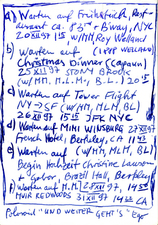 a) Warten auf Frühstück, Rest-
aurant ca. 85th + B'way, NYC
20 XII 97 15 w/MM, Roy Wellan
b) Warten auf (1988 Wellan)
Christmas Dinner (Capaun)
25 XII 97 STONY BROOK
(w/ MM, M.L.M., B.L.) 20 15
c) Warten auf Tower Flight
NY → SF (w/ MM, MLM, BL)
26 XII 97 15 15 JFK NYC
d) Warten auf MIMI WINSBURG 27 XII 97
French Hotel, Berkeley, CA 11 43
e) Warten auf (w/ MM, MLM, BL)
Begin Hochzeit Christine
+ Gabor, Brazil Hall, Berkeley
f) Warten auf M.M. 28 XII 97, 14 50
MUIR REDWOODS 31 XII 97 14 CA
"UND WEITER GEHT'S"